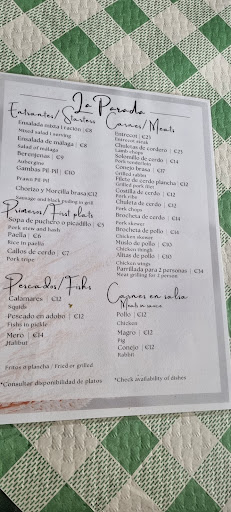 La Parada
Entrantes/ Starters
Ensalada mixta 1 racion | €8
Mixed salad 1 serving
Ensalada de málaga | €8
Salad of malaga
Berenjenas | €9
Aubergine
Gambas PIL Pil | €10
Prawn Pil Pil
Chorizo y Morcilla brasa|€12
Sausage and black puding to grill
Primeros/First plats
Sopa de puchero o picadillo | €5
Pork stew and hash
Paella | €6
Rice to paella
Callos de cerdo | €7
Pork trips
Pescados/Fishs
Calamares | €12
Squids
Pescado en adobo | €12
Fishs to pickle
Mero | €14
Halibut
Fritos o plancha / Fried or grilled
*Consultar disponibilidad de platos
Carnes/Meats
Entrecot | €21
Entrecot steak
Chuletas de cordero |
Lamb chops
Solomillo de cerdo | €14
Pork tenderloin
Conejo brasa | €17
Grilled rabbit
Filete de cerdo plancha | €12
Grilled pork filet
Costilla de cerdo | €12
Pork ribs
Chuleta de cerdo | €12
Pork chops
Brocheta de cerdo | €14
Pork skewer
Brocheta de pollo | €14
Chicken skewer
Muslo de pollo | €10
Chicken thingh
Alitas de pollo | €10
Chicken wings
Parrillada para 2 personas | €34
Meat grilling for 2 person
Carnes en salsa
Meats in sauce
Pollo | €12
Chicken
Magro | €12
Pig
Conejo | €12
Rabbit
*Check availability of dishes